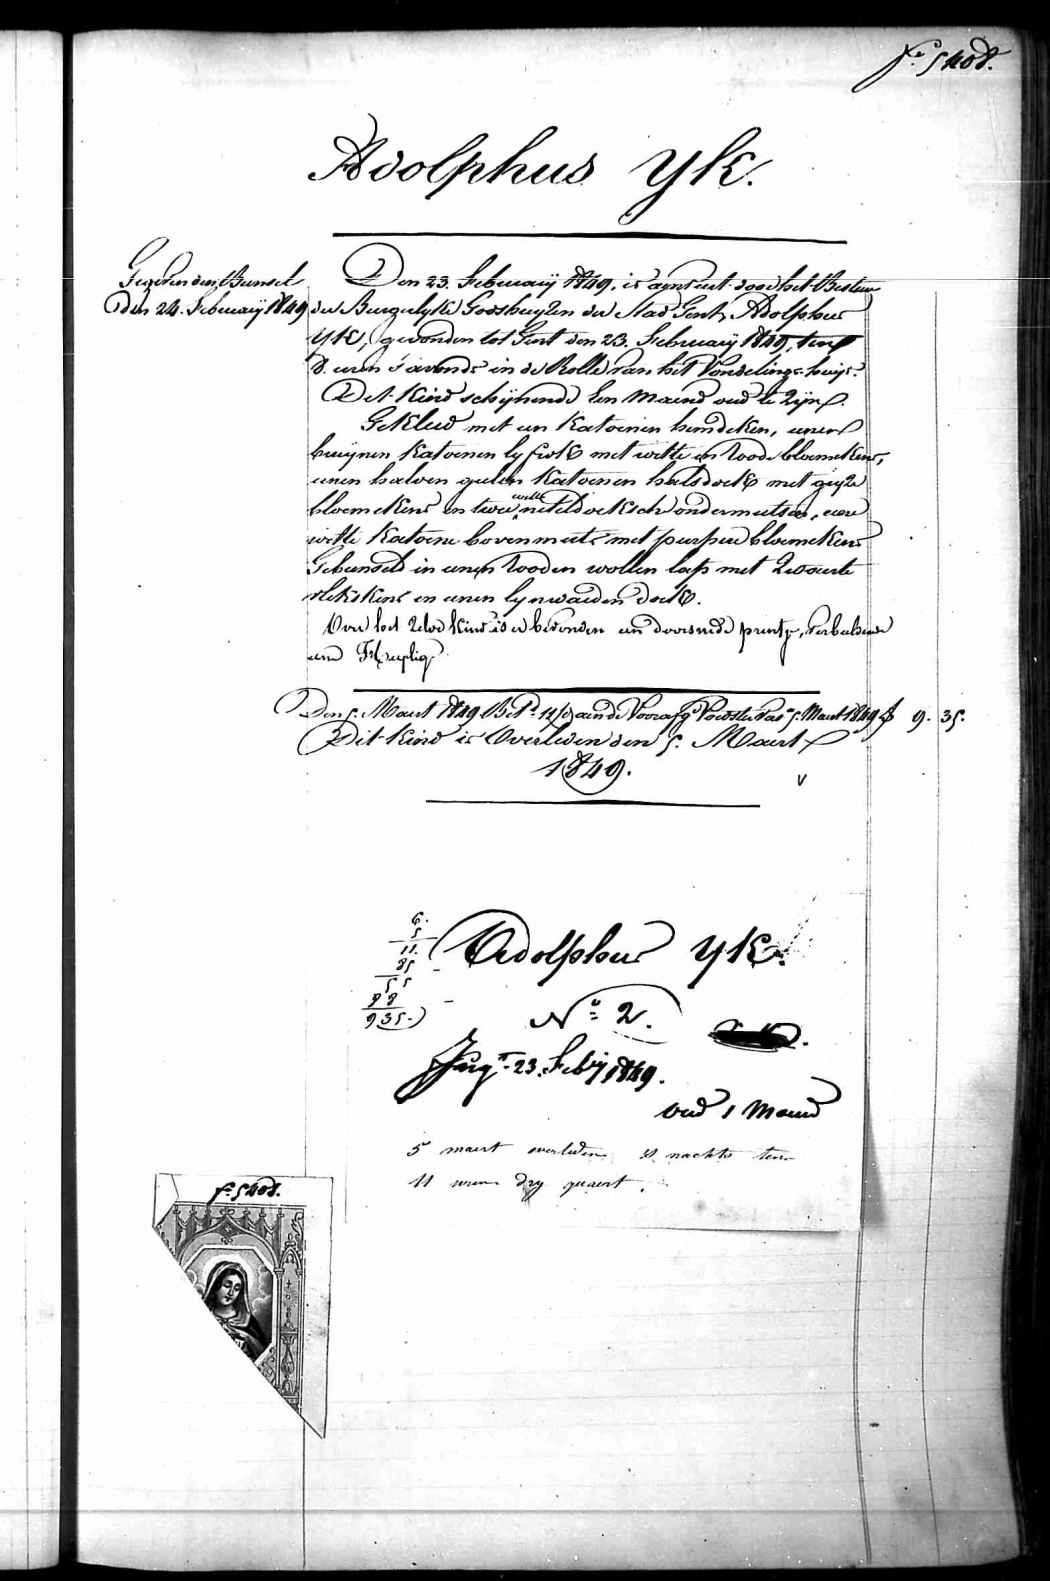 fº 5408.
Adolphus Yk.
Gegeven den Bunsel
den 24. February 1849
Den 23. February 1849, is aenveert door het Bestier
der Burgerlyke Godshuyzen der Stad Gent, Adolphus
Yk, gevonden tot Gent den 23. February 1849, ten
8. uren s'avonds in de Rolle van het Vondelings-huys.
Dit Kind schijnende Een Maend oud te zijn.
Gekleed met een Katoenen hemdeken, eenen
bruijnen Katoenen lyfrok met witte en roode bloemekens,
eenen halven geelen Katoenen halsdoek met gryze
bloemekens en twee witte neteldoeksche ondermutsen, eene
witte Katoene bovenmuts met purpere bloemekens
Gebunseld in eenen rooden wollen lap met zwaerte
vlekskens en eenen lynwaeden doek.
Over het zelve kind is er bevonden een doorsnede printje, verbeldende
eene
Den 5. Maert 1849 Bet. aen de Voorzegde Voedster 5. Maert 1849 f 9. 35.
Dit Kind is Overleden den 5. Maert
1849.
v
6.
5
11.
85
55
88
935.
Adolphus Yk.
Nº 2.
Ingt. 23. Feby 1849.
oud 1 Maend
5 maert overleden s nachts ten
11 uren dry quaert.
fº 5408.